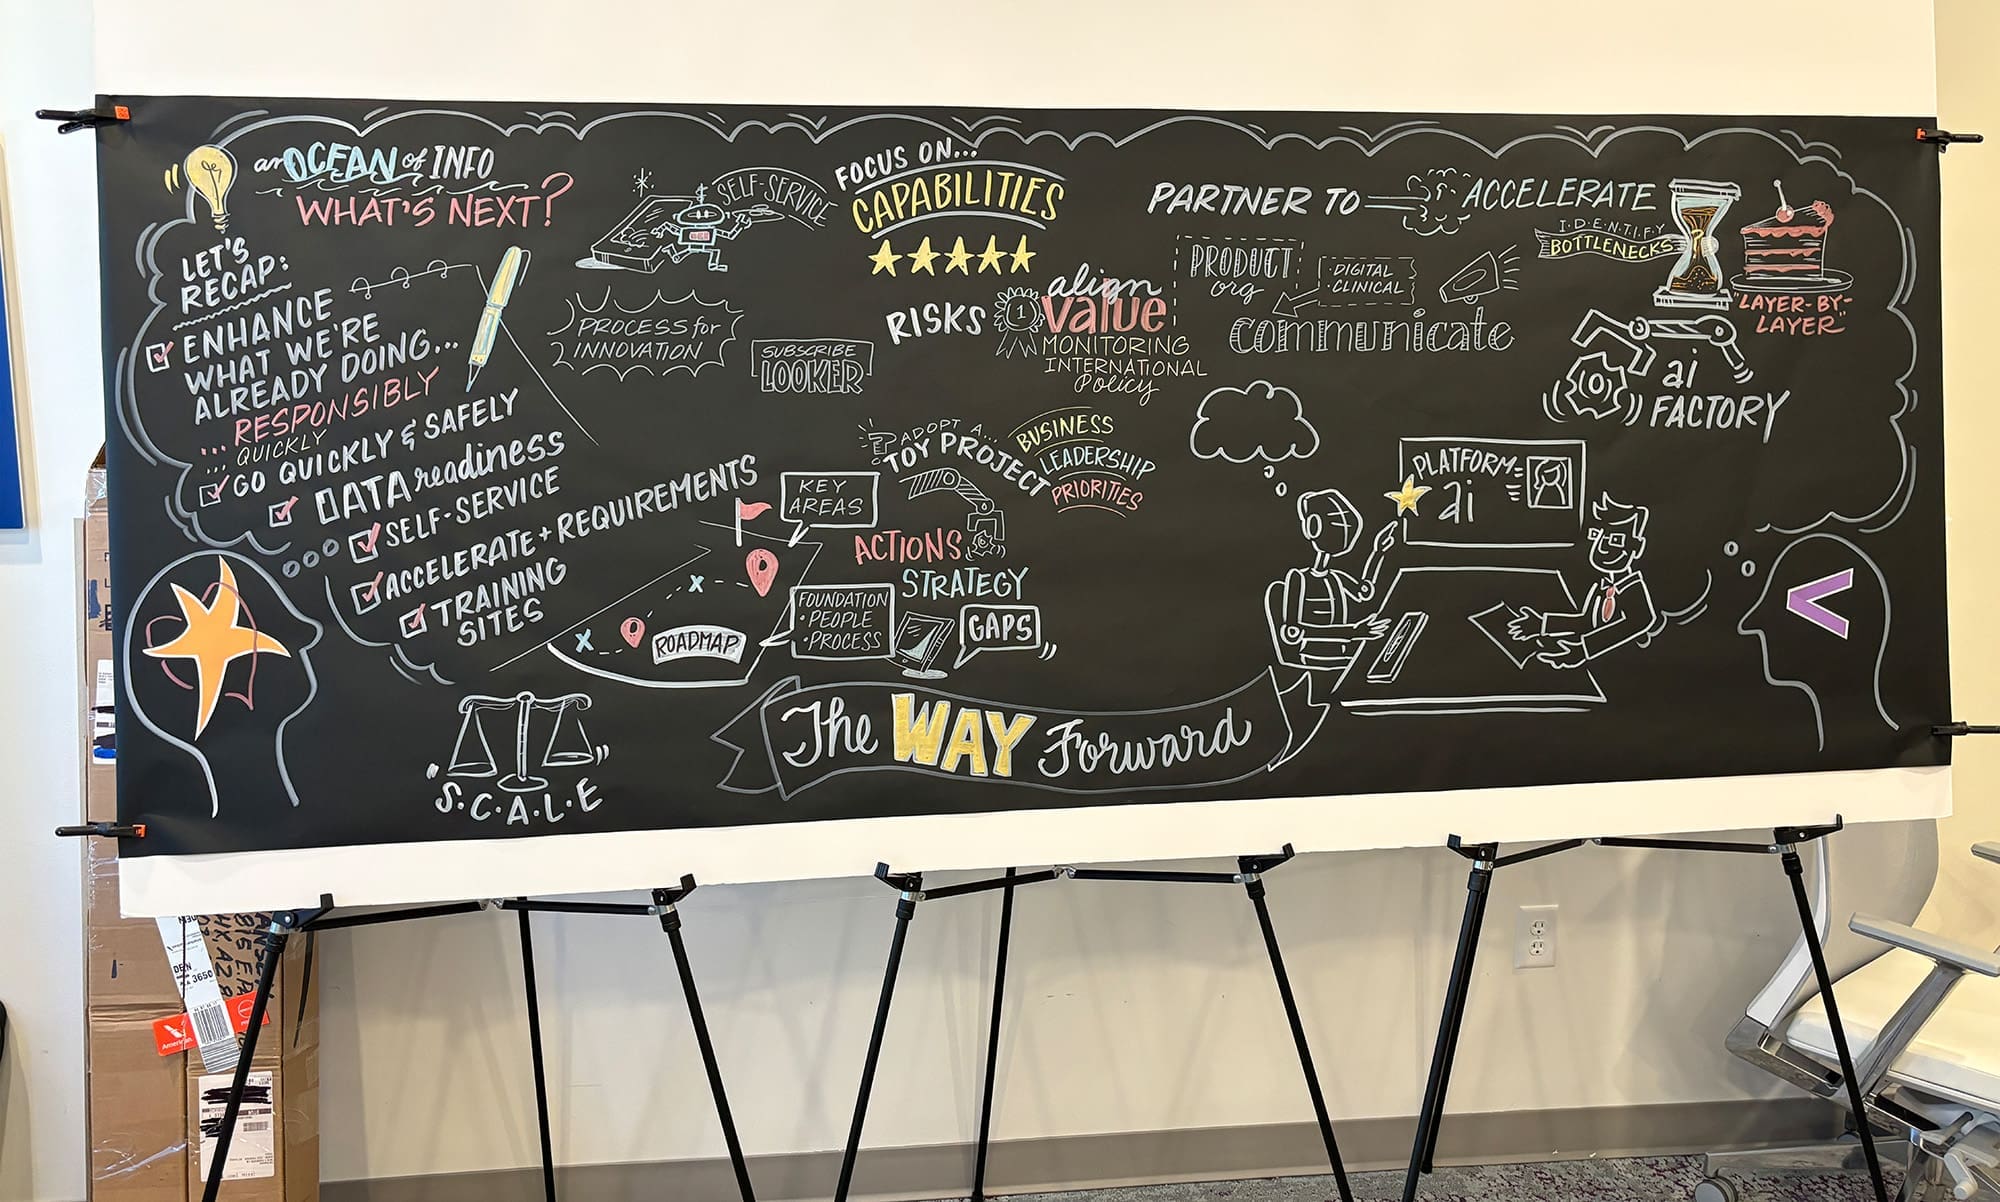 an OCEAN of INFO
WHAT'S NEXT?
LET'S
RECAP:
ENHANCE
WHAT WE'RE
ALREADY DOING...
...RESPONSIBLY
...QUICKLY
GO QUICKLY & SAFELY
DATA readiness
SELF-SERVICE
ACCELERATE + REQUIREMENTS
TRAINING
SITES
SELF-SERVICE
PROCESS for
INNOVATION
SUBSCRIBE
LOOKER
FOCUS ON...
CAPABILITIES
RISKS
1
align
value
MONITORING
INTERNATIONAL
Policy
PARTNER TO
ACCELERATE
I·D·E·N·T·I·F·Y
BOTTLENECKS
PRODUCT
org
DIGITAL
CLINICAL
communicate
"LAYER-BY-
LAYER"
ai
FACTORY
?
ADOPT A...
TOY PROJECT
BUSINESS
LEADERSHIP
PRIORITIES
KEY
AREAS
ACTIONS
STRATEGY
FOUNDATION
• PEOPLE
• PROCESS
GAPS
ROADMAP
x
x
PLATFORM
ai
"S·C·A·L·E"
The WAY Forward
V
DEN
3650
American